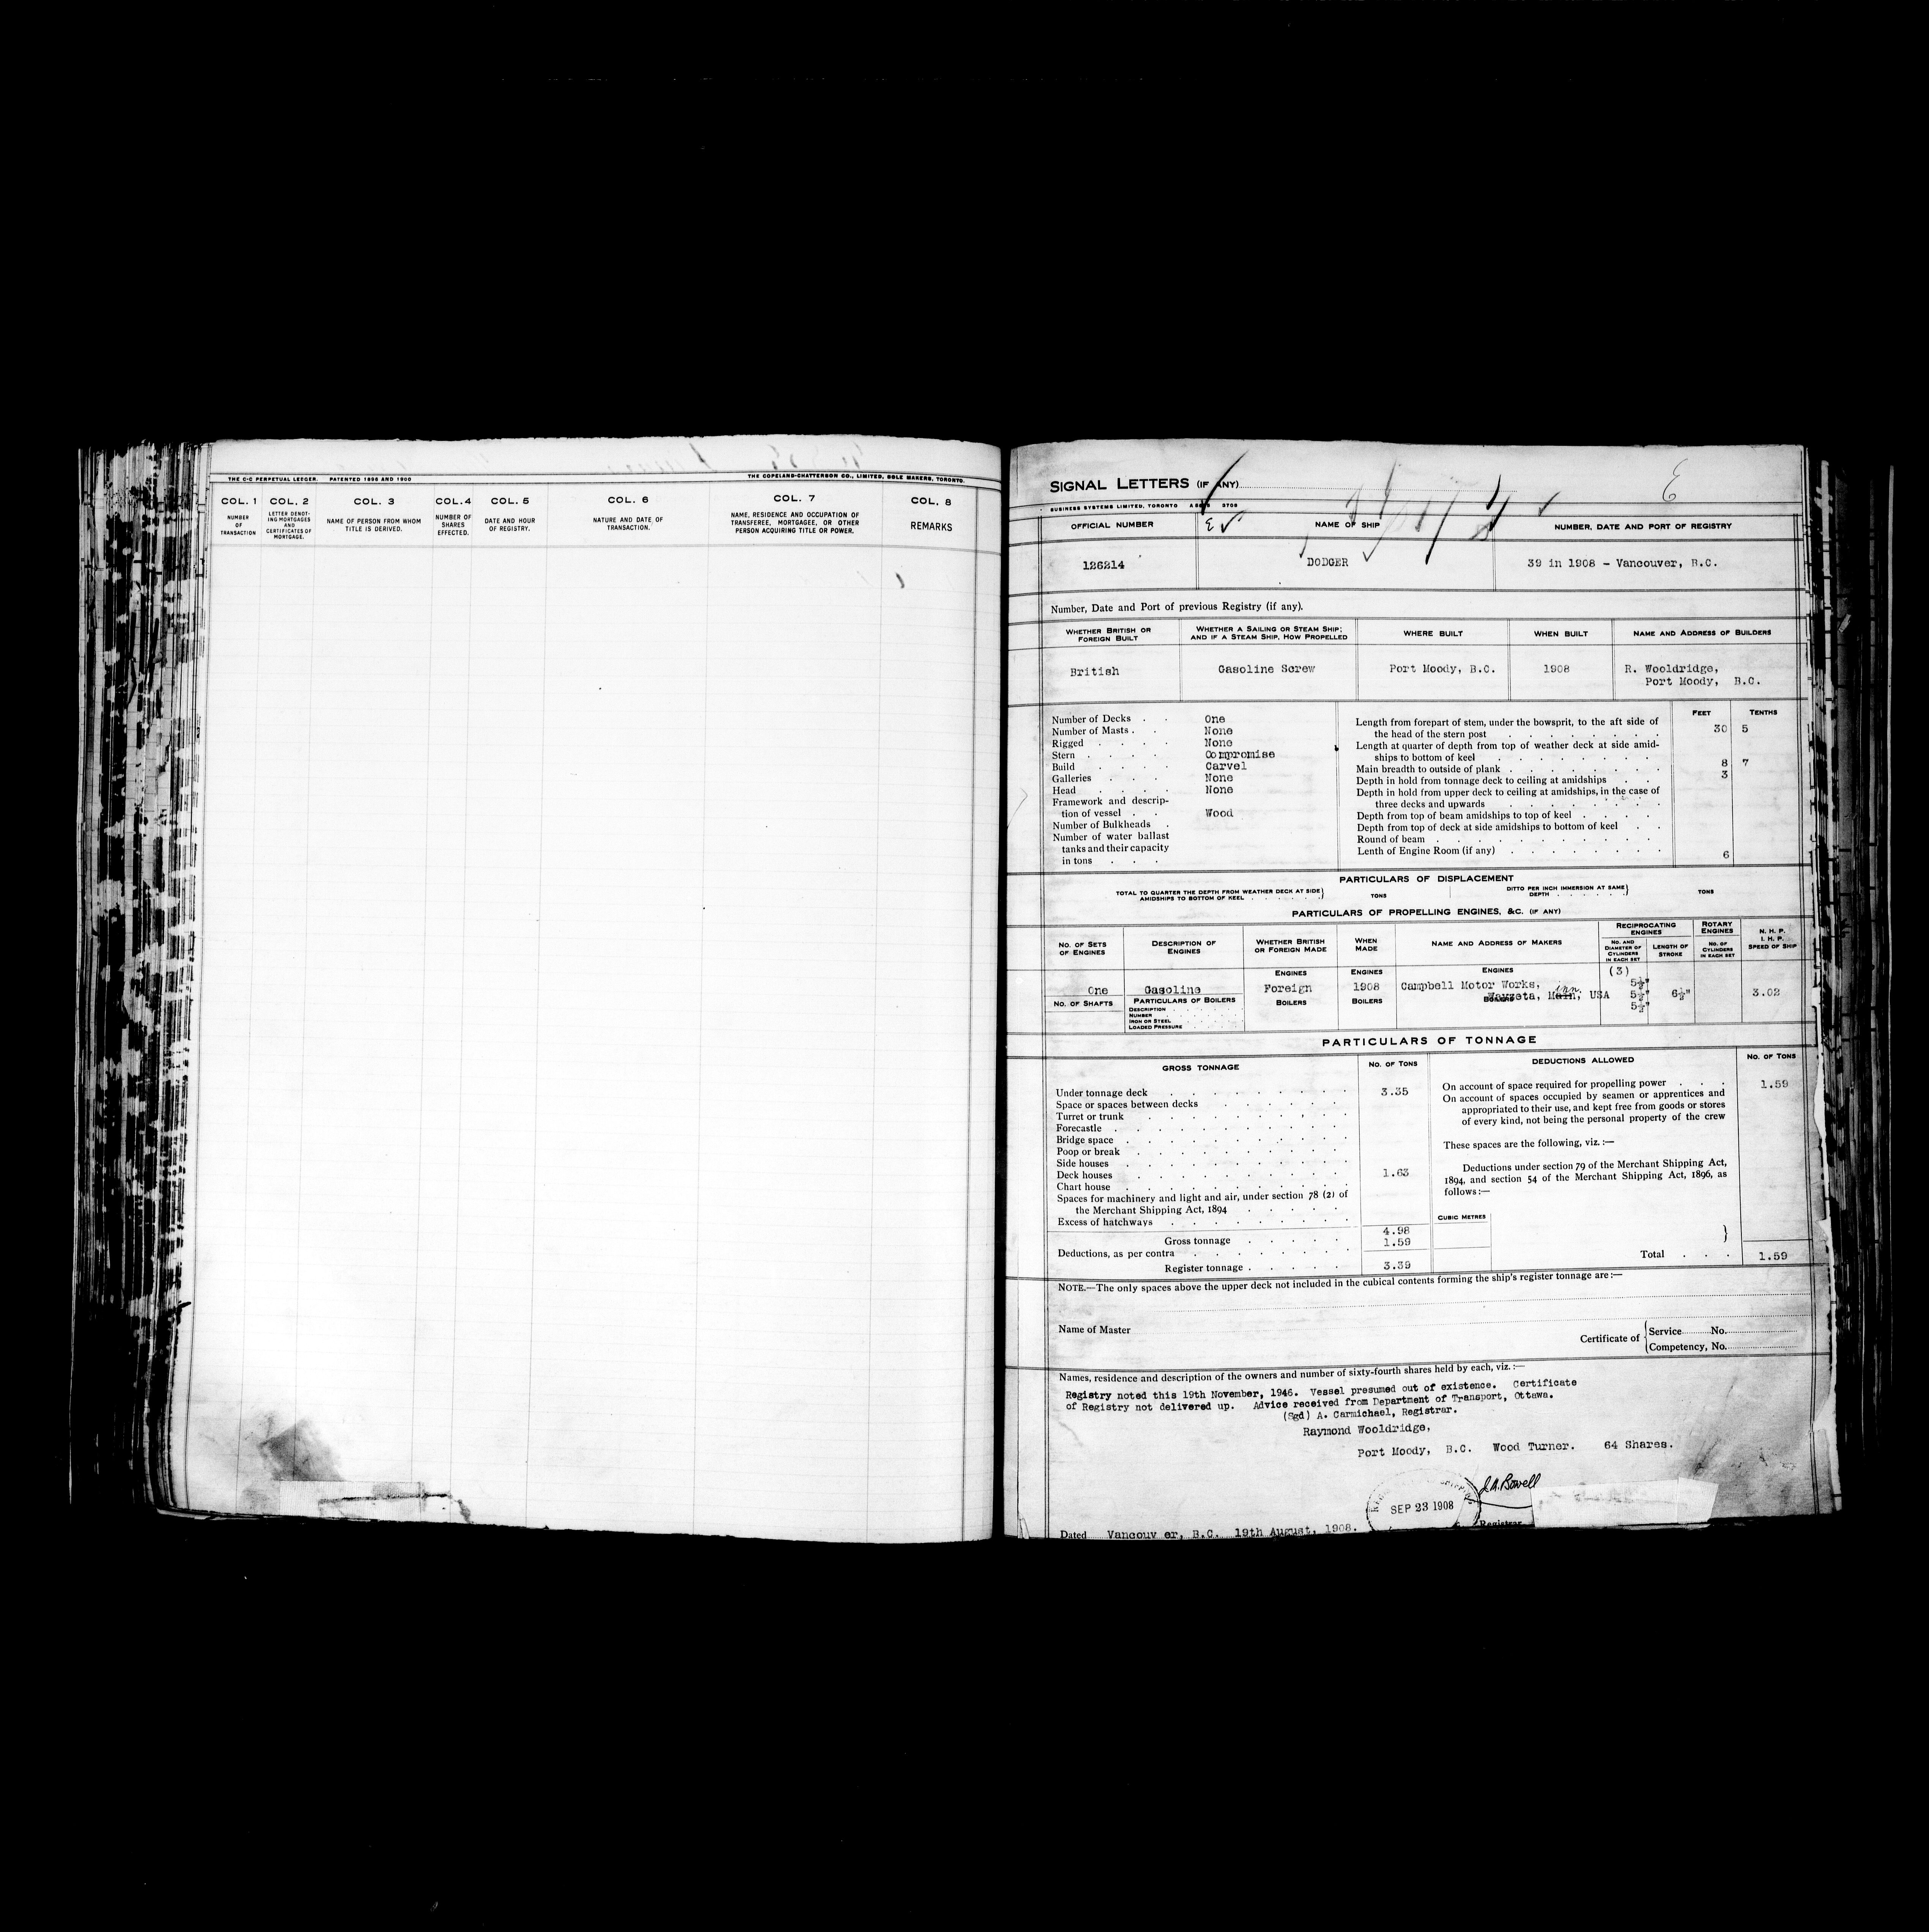 THE C-C PERPETUAL LEDGER. PATENTED 1896 AND 1900
THE COPELAND-CHATTERSON CO., LIMITED, SOLE MAKERS, TORONTO.
COL. 1 COL. 2 COL. 3 COL. 4 COL. 5 COL. 6 COL. 7 COL. 8
NUMBER OF TRANSACTION
LETTER DENOTING MORTGAGES AND CERTIFICATES OF MORTGAGE.
NAME OF PERSON FROM WHOM TITLE IS DERIVED.
NUMBER OF SHARES EFFECTED.
DATE AND HOUR OF REGISTRY.
NATURE AND DATE OF TRANSACTION.
NAME, RESIDENCE AND OCCUPATION OF TRANSFEREE, MORTGAGEE, OR OTHER PERSON ACQUIRING TITLE OR POWER.
REMARKS
SIGNAL LETTERS (IF ANY)
BUSINESS SYSTEMS LIMITED, TORONTO
OFFICIAL NUMBER NAME OF SHIP NUMBER, DATE AND PORT OF REGISTRY
126214 DODGER 39 in 1908 - Vancouver, B.C.
Number, Date and Port of previous Registry (if any).
WHETHER BRITISH OR FOREIGN BUILT
WHETHER A SAILING OR STEAM SHIP; AND IF A STEAM SHIP, HOW PROPELLED
WHERE BUILT
WHEN BUILT
NAME AND ADDRESS OF BUILDERS
British Gasoline Screw Port Moody, B.C. 1908 R. Wooldridge,
Port Moody, B.C.
FEET TENTHS
Number of Decks One
Number of Masts None
Rigged None
Stern Compromise
Build Carvel
Galleries None
Head None
Framework and descrip-
tion of vessel Wood
Number of Bulkheads
Number of water ballast
tanks and their capacity
in tons
Length from forepart of stem, under the bowsprit, to the aft side of
the head of the stern post 30 5
Length at quarter of depth from top of weather deck at side amid-
ships to bottom of keel
Main breadth to outside of plank 8 7
Depth in hold from tonnage deck to ceiling at amidships 3
Depth in hold from upper deck to ceiling at amidships, in the case of
three decks and upwards
Depth from top of beam amidships to top of keel
Depth from top of deck at side amidships to bottom of keel
Round of beam
Lenth of Engine Room (if any) 6
PARTICULARS OF DISPLACEMENT
TOTAL TO QUARTER THE DEPTH FROM WEATHER DECK AT SIDE AMIDSHIPS TO BOTTOM OF KEEL TONS
DITTO PER INCH IMMERSION AT SAME DEPTH TONS
PARTICULARS OF PROPELLING ENGINES, &C. (IF ANY)
NO. OF SETS OF ENGINES
DESCRIPTION OF ENGINES
WHETHER BRITISH OR FOREIGN MADE
WHEN MADE
NAME AND ADDRESS OF MAKERS
RECIPROCATING ENGINES
NO. AND DIAMETER OF CYLINDERS IN EACH SET
LENGTH OF STROKE
ROTARY ENGINES
NO. OF CYLINDERS IN EACH SET
N. H. P.
I. H. P.
SPEED OF SHIP
ENGINES ENGINES ENGINES (3)
One Gasoline Foreign 1908 Campbell Motor Works, 5½"
Wayzeta, Main, inn. USA 5½" 6½" 3.02
5½"
NO. OF SHAFTS PARTICULARS OF BOILERS BOILERS BOILERS BOILERS
DESCRIPTION
NUMBER
IRON OR STEEL
LOADED PRESSURE
PARTICULARS OF TONNAGE
GROSS TONNAGE NO. OF TONS DEDUCTIONS ALLOWED NO. OF TONS
Under tonnage deck 3.35
Space or spaces between decks
Turret or trunk
Forecastle
Bridge space
Poop or break
Side houses
Deck houses 1.63
Chart house
Spaces for machinery and light and air, under section 78 (2) of
the Merchant Shipping Act, 1894
Excess of hatchways
Gross tonnage 4.98
Deductions, as per contra 1.59
Register tonnage 3.39
On account of space required for propelling power 1.59
On account of spaces occupied by seamen or apprentices and
appropriated to their use, and kept free from goods or stores
of every kind, not being the personal property of the crew
These spaces are the following, viz.:—
Deductions under section 79 of the Merchant Shipping Act,
1894, and section 54 of the Merchant Shipping Act, 1896, as
follows:—
CUBIC METRES
Total 1.59
NOTE.—The only spaces above the upper deck not included in the cubical contents forming the ship's register tonnage are:—
Name of Master
Certificate of Service No.
Competency, No.
Names, residence and description of the owners and number of sixty-fourth shares held by each, viz.:—
Registry noted this 19th November, 1946. Vessel presumed out of existence. Certificate
of Registry not delivered up. Advice received from Department of Transport, Ottawa.
(Sgd) A. Carmichael, Registrar.
Raymond Wooldridge,
Port Moody, B.C. Wood Turner. 64 Shares.
J.A. Bowell
SEP 23 1908
Dated Vancouv er, B.C. 19th August, 1908.
Registrar